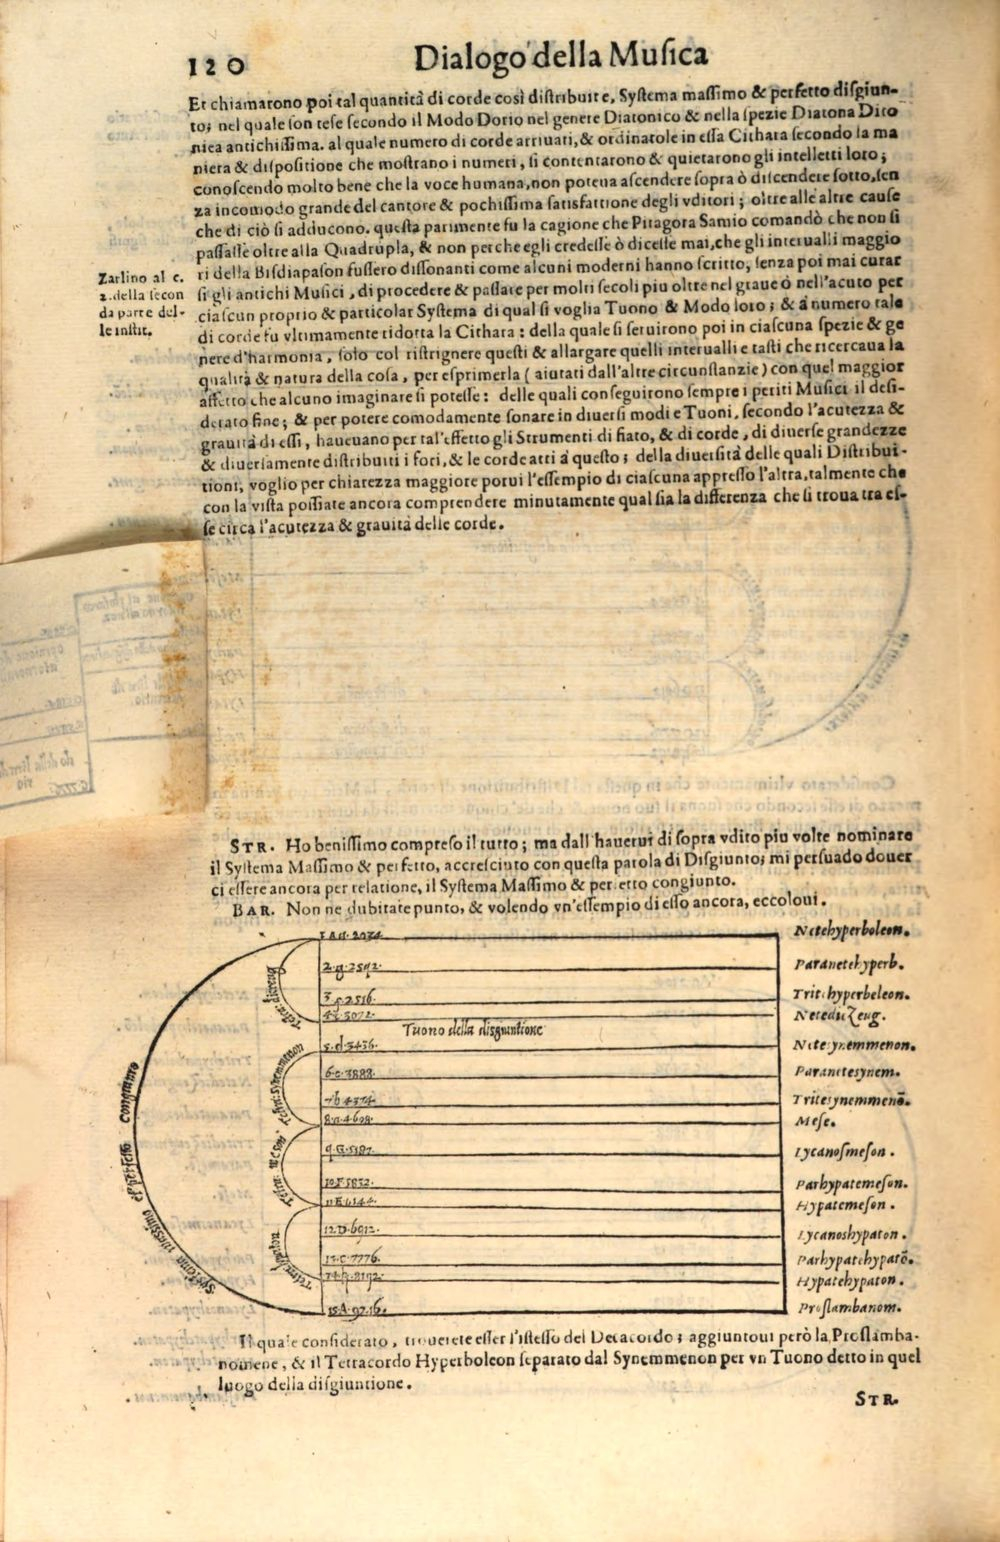 120
Dialogo della Musica
Et chiamarono poi tal quantità di corde così distribuite, Systema massimo & perfetto disgiun-
to; nel quale son tese secondo il Modo Dorio nel genere Diatonico & nella spezie Diatona Dito
nica antichissima. al quale numero di corde arriuati, & ordinatole in essa Cithara secondo la ma
niera & dispositione che mostrano i numeri, si contentarono & quietarono gli intelletti loro;
conoscendo molto bene che la voce humana, non poteua ascendere sopra ò discendere sotto, sen
za incomodo grande del cantore & pochissima satisfattione degli vditori; oltre alle altre cause
che di ciò si adducono. questa parimente fu la cagione che Pitagora Samio comandò che non si
passasse oltre alla Quadrupla, & non perche egli credesse ò dicesse mai, che gli interualli maggio
ri della Bisdiapason fussero dissonanti come alcuni moderni hanno scritto, senza poi mai curar
si gli antichi Musici, di procedere & passare per molti secoli piu oltre nel graue ò nell'acuto per
ciascun proprio & particolar Systema di qual si voglia Tuono & Modo loro; & à numero tale
di corde fu vltimamente ridotta la Cithara: della quale si seruirono poi in ciascuna spezie & ge
nere d'harmonia, solo col ristrignere questi & allargare quelli interualli e tasti che ricercaua la
qualità & natura della cosa, per esprimerla (aiutati dall'altre circunstanzie) con quel maggior
affetto che alcuno imaginare si potesse: delle quali conseguirono sempre i periti Musici il desi-
derato fine; & per potere comodamente sonare in diuersi modi e Tuoni, secondo l'acutezza &
grauità di essi, haueuano per tal'effetto gli Strumenti di fiato, & di corde, di diuerse grandezze
& diuersamente distribuiti i fori, & le corde atti à questo; della diuersità delle quali Distribui-
tioni, voglio per chiarezza maggiore porui l'essempio di ciascuna appresso l'altra, talmente che
con la vista possiate ancora comprendere minutamente qual sia la differenza che si troua tra es-
se circa l'acutezza & grauità delle corde.
Zarlino al c.
2. della secon
da parte del-
le instit.
STR. Ho benissimo compreso il tutto; ma dall'hauerui di sopra vdito piu volte nominare
il Systema Massimo & perfetto, accresciuto con questa parola di Disgiunto; mi persuado douer
ci essere ancora per relatione, il Systema Massimo & perfetto congiunto.
BAR. Non ne dubitate punto, & volendo vn'essempio di esso ancora, eccoloui.
Netehyperboleon.
2.g.2592. Paranetehyperb.
Tritehyperboleon.
4.e.3072. NetedieZeug.
Tuono della disgiuntione
5.d.3456. Netesynemmenon.
6.c.3888. Paranetesynem.
7.b.4374. Tritesynemmenō.
8.a.4608. Mese.
9.G.5187. Lycanosmeson.
10.F.5832. Parhypatemeson.
11.E.6144. Hypatemeson.
12.D.6912. Lycanoshypaton.
13.C.7776. Parhypatehypatō.
14.B.8192. Hypatehypaton.
15.A.9216. Proslambanom.
Tetra: synemmenon
Tetra: meson.
Tetra: hypaton
Systema massimo et perfetto congiunto
Il quale considerato, trouerete esser l'istesso del Decacordo; aggiuntoui però la Proslamba-
nomene, & il Tetracordo Hyperboleon separato dal Synemmenon per vn Tuono detto in quel
luogo della disgiuntione.
STR.